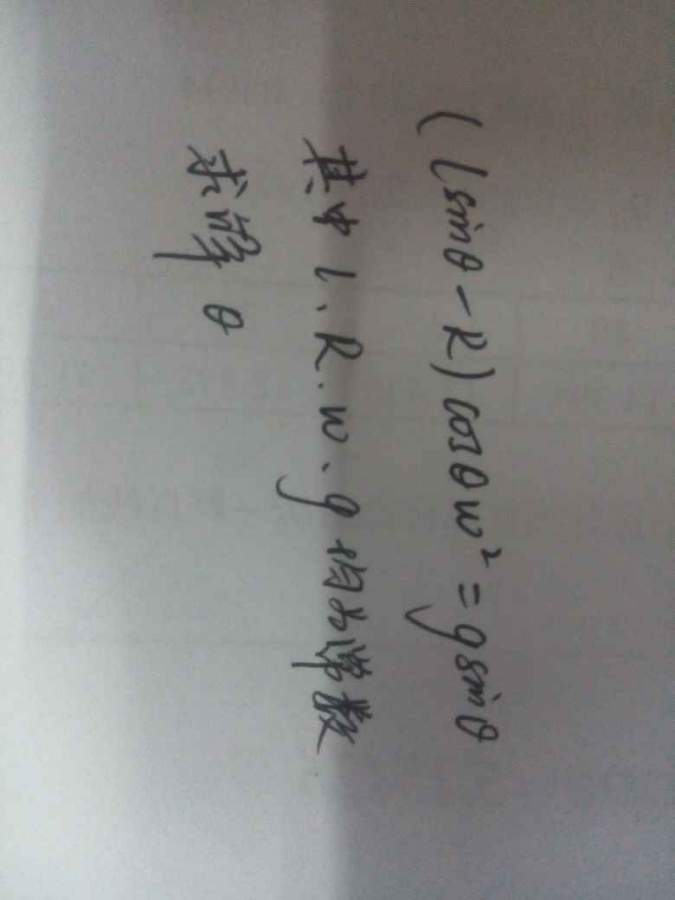 (lsinθ-R)cosθw²=gsinθ
其中l、R、w、g均为常数
求解θ